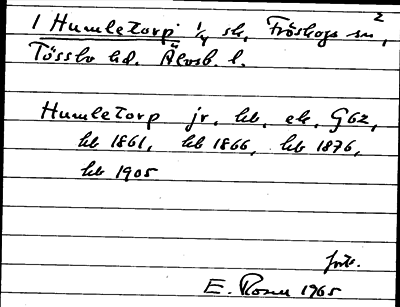 1 Humletorp 1/4 sk, Fröskogs sn,2
Tössbo hd. Älvsb. l.
Humletorp jr, hb, ek, G62,
hb 1861, hb 1866, hb 1876,
hb 1905
fört.
E. Rosell 1965